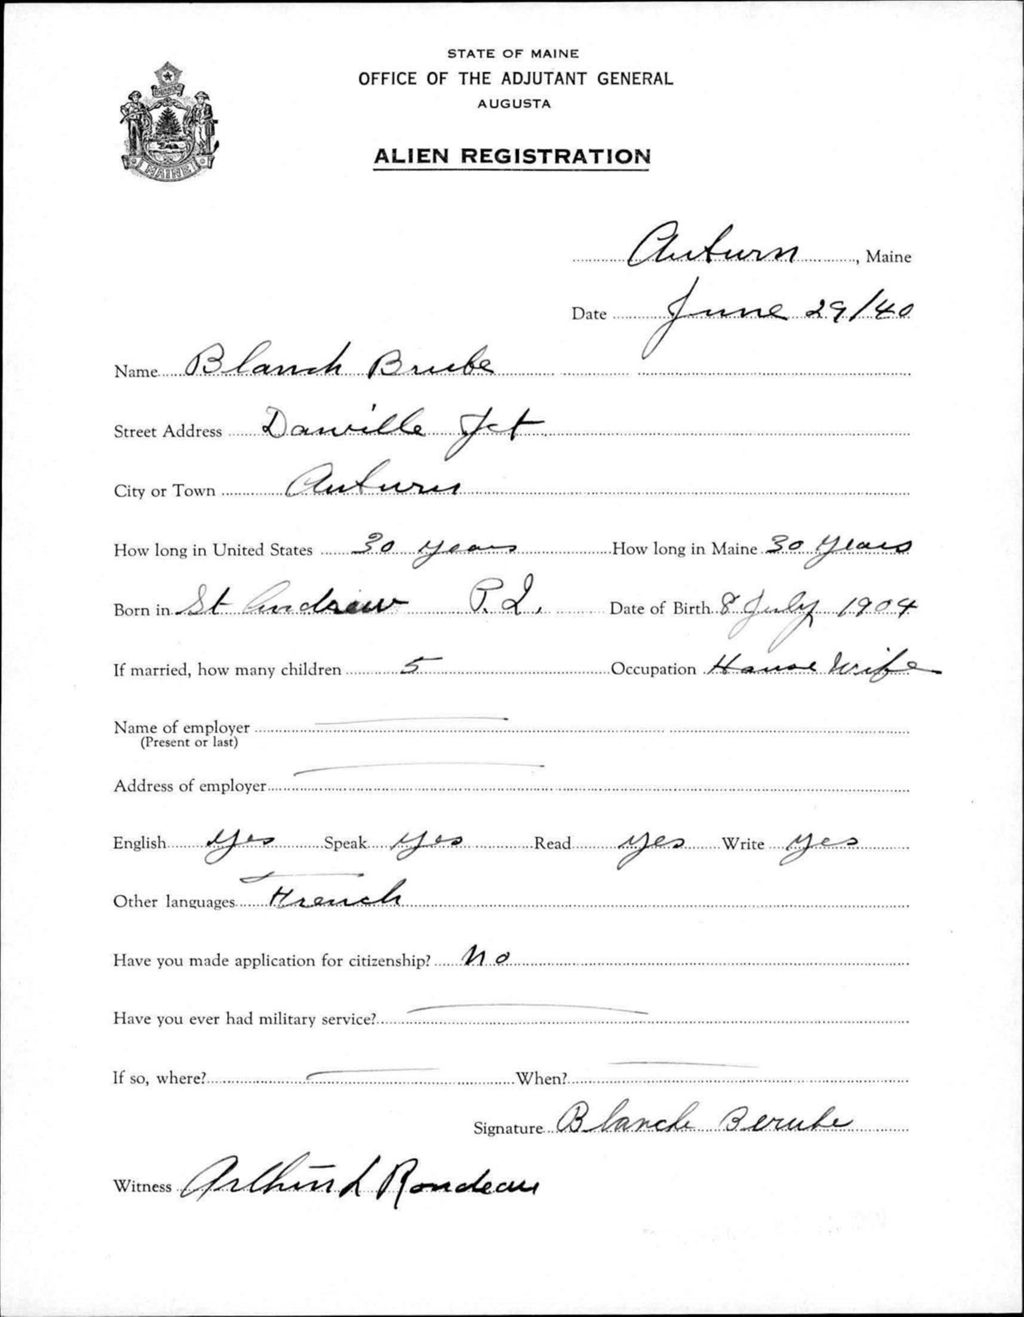 STATE OF MAINE
OFFICE OF THE ADJUTANT GENERAL
AUGUSTA
ALIEN REGISTRATION
MAINE
Auburn, Maine
Date June 29/40
Name Blanch Brube
Street Address Danville Jct
City or Town Auburn
How long in United States 30 years How long in Maine 30 years
Born in St Andrew P.I. Date of Birth 8 July 1904
If married, how many children 5 Occupation House Wife
Name of employer
(Present or last)
Address of employer
English Yes Speak Yes Read Yes Write Yes
Other languages French
Have you made application for citizenship? No
Have you ever had military service?
If so, where? When?
Signature Blanche Berube
Witness Arthur L Rondeau